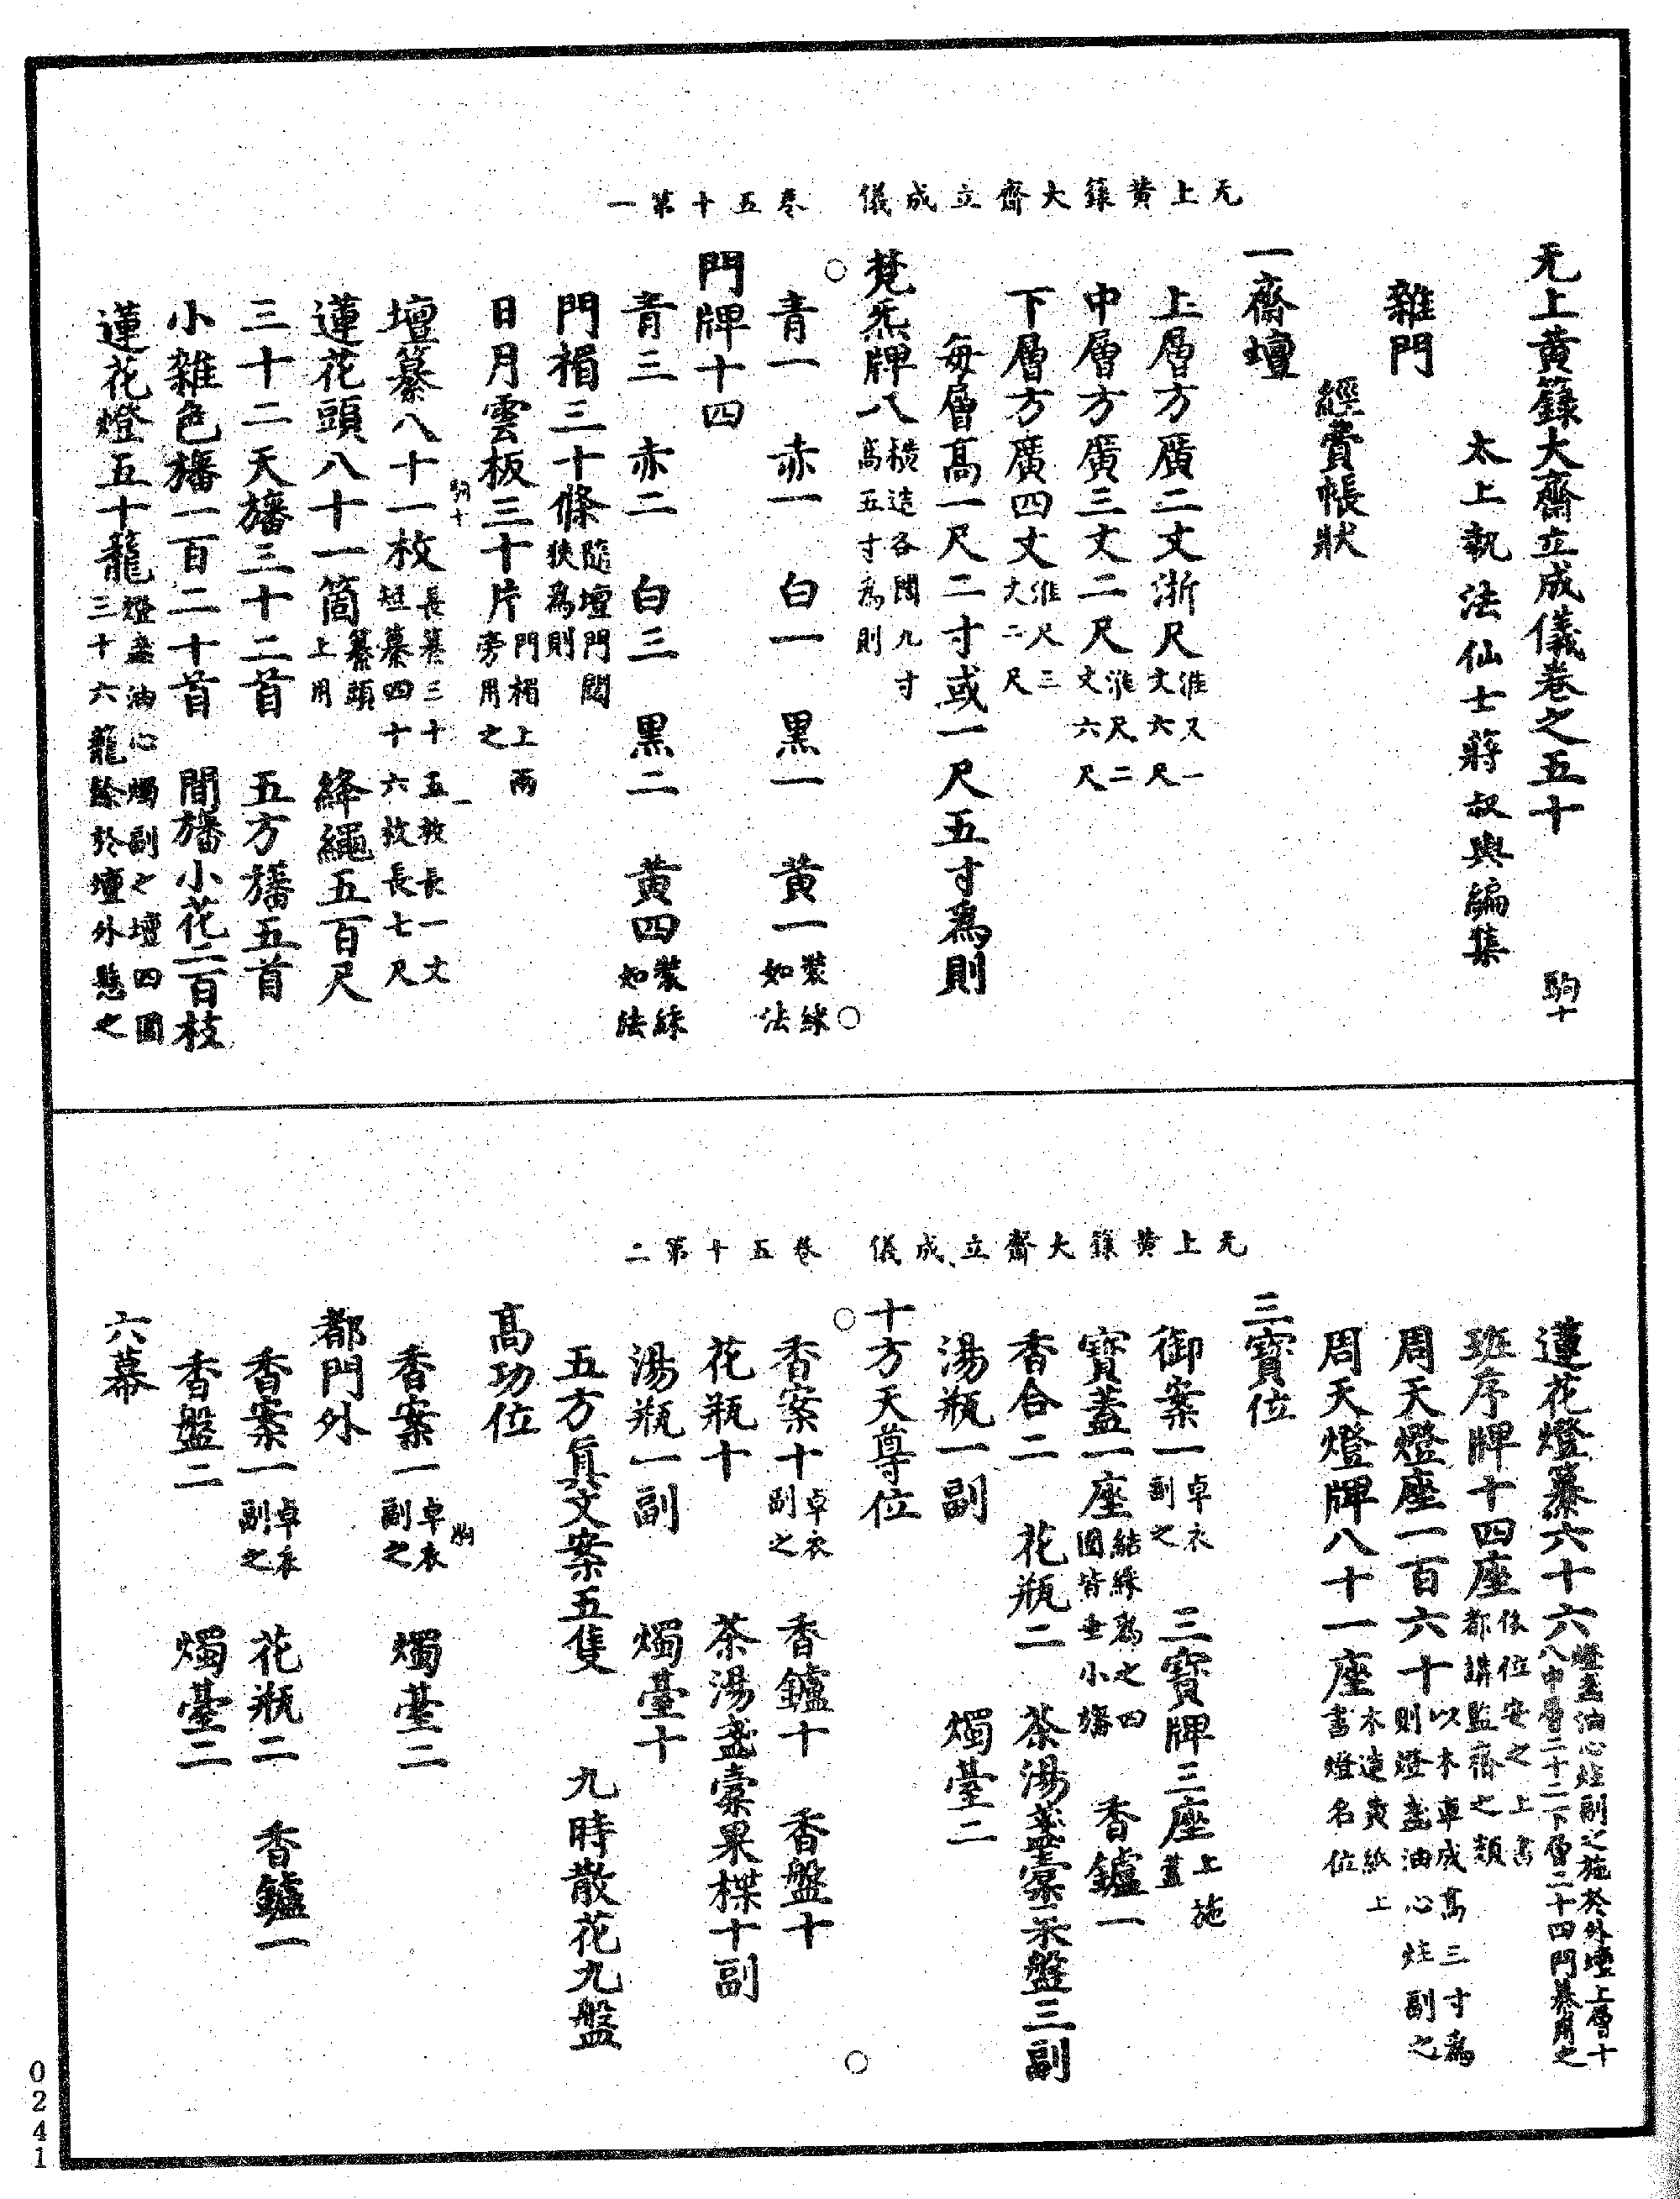 无上黃籙大齋立成儀 卷五十第一
无上黃籙大齋立成儀卷之五十 駒十
太上執法仙士蔣叔輿編集
雜門
經費帳狀
一齋壇
上層方廣二丈浙尺淮尺一丈六尺
中層方廣三丈二尺淮尺二丈六尺
下層方廣四丈淮尺三丈二尺
每層高一尺二寸或一尺五寸為則
梵炁牌八橫造各闊九寸高五寸為則
青一 赤一 白一 黑一 黃一裝綵如法
門牌十四
青三 赤二 白三 黑二 黃四裝綵如法
門楣三十條隨壇門闊狹為則
日月雲板三十片門楣上兩旁用之
壇纂八十一枚長纂三十五枚長一丈一短纂四十六枚長七尺
駒十
蓮花頭八十一箇纂頭上用 絳繩五百尺
三十二天旛三十二首 五方旛五首
小雜色旛一百二十首 間旛小花二百枝
蓮花燈五十籠燈盞油心燭副之壇四圍三十六籠餘於壇外懸之
无上黃籙大齋立成儀 卷五十第二
蓮花燈纂六十六燈盞油心炷副之施於外壇上層十八中層二十二下層二十四門纂用之
班序牌十四座依位安之上書都講監齋之類
周天燈座一百六十以木車成高三寸為則燈盞油心炷副之
周天燈牌八十一座木造黃紙上書燈名位
三寶位
御案一卓衣副之 三寶牌三座上施蓋
寶蓋一座結綵為之四圍皆垂小旛 香鑪一
香合二 花瓶二 茶湯盞橐果盤三副
湯瓶一副 燭臺二
十方天尊位
香案十卓衣副之 香鑪十 香盤十
花瓶十 茶湯盞橐果楪十副
湯瓶一副 燭臺十
五方真文案五隻 九時散花九盤
高功位
香案一卓衣副之 燭臺二
駒
都門外
香案一卓衣副之 花瓶二 香鑪一
香盤二 燭臺二
六幕
0241